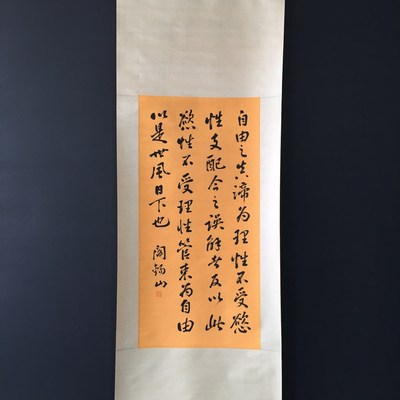 自由之真諦为理性不受慾
性支配今之误解者反以此
慾性不受理性管束为自由
以是世風日下也 阎锡山